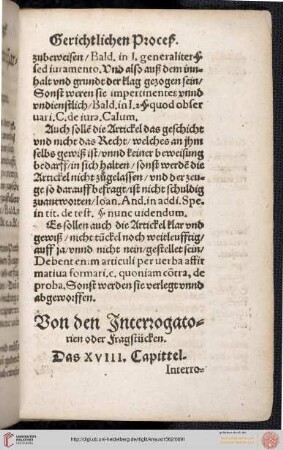 Gerichtlichen Proceß.
zubeweisen / Bald. in l. generaliter §
sed iuramento. Vnd also auß dem inn-
halt vnd grundt der klag gezogen sein /
Sonst weren sie impertinentes vnnd
vndienstlich / Bald. in l. 2 § quod obser
uari. C. de iura. Calum.
Auch solle die Artickel das geschicht
vnd nicht das Recht / welches an jhm
selbs gewiß ist / vnnd keiner beweisung
bedarff / in sich halten / sonst werde die
Artickel nicht zůgelassen / vnd der zeu-
ge so darauff befragt / ist nicht schuldig
zuantworten / Ioan. And. in addi. Spe.
in tit. de test. § nunc uidendum.
Es sollen auch die Artickel klar vnd
gewiß / nicht tückel noch weitleufftig /
auff ja / vnnd nicht nein / gestellet sein /
Debent enim articuli per uerba affir
matiua formari. c. quoniam cōtra, de
proba. Sonst werden sie verlegt vnnd
abgeworffen.
Von den Interrogato-
rien oder Fragstücken.
Das XVIII. Capittel.
Interro-